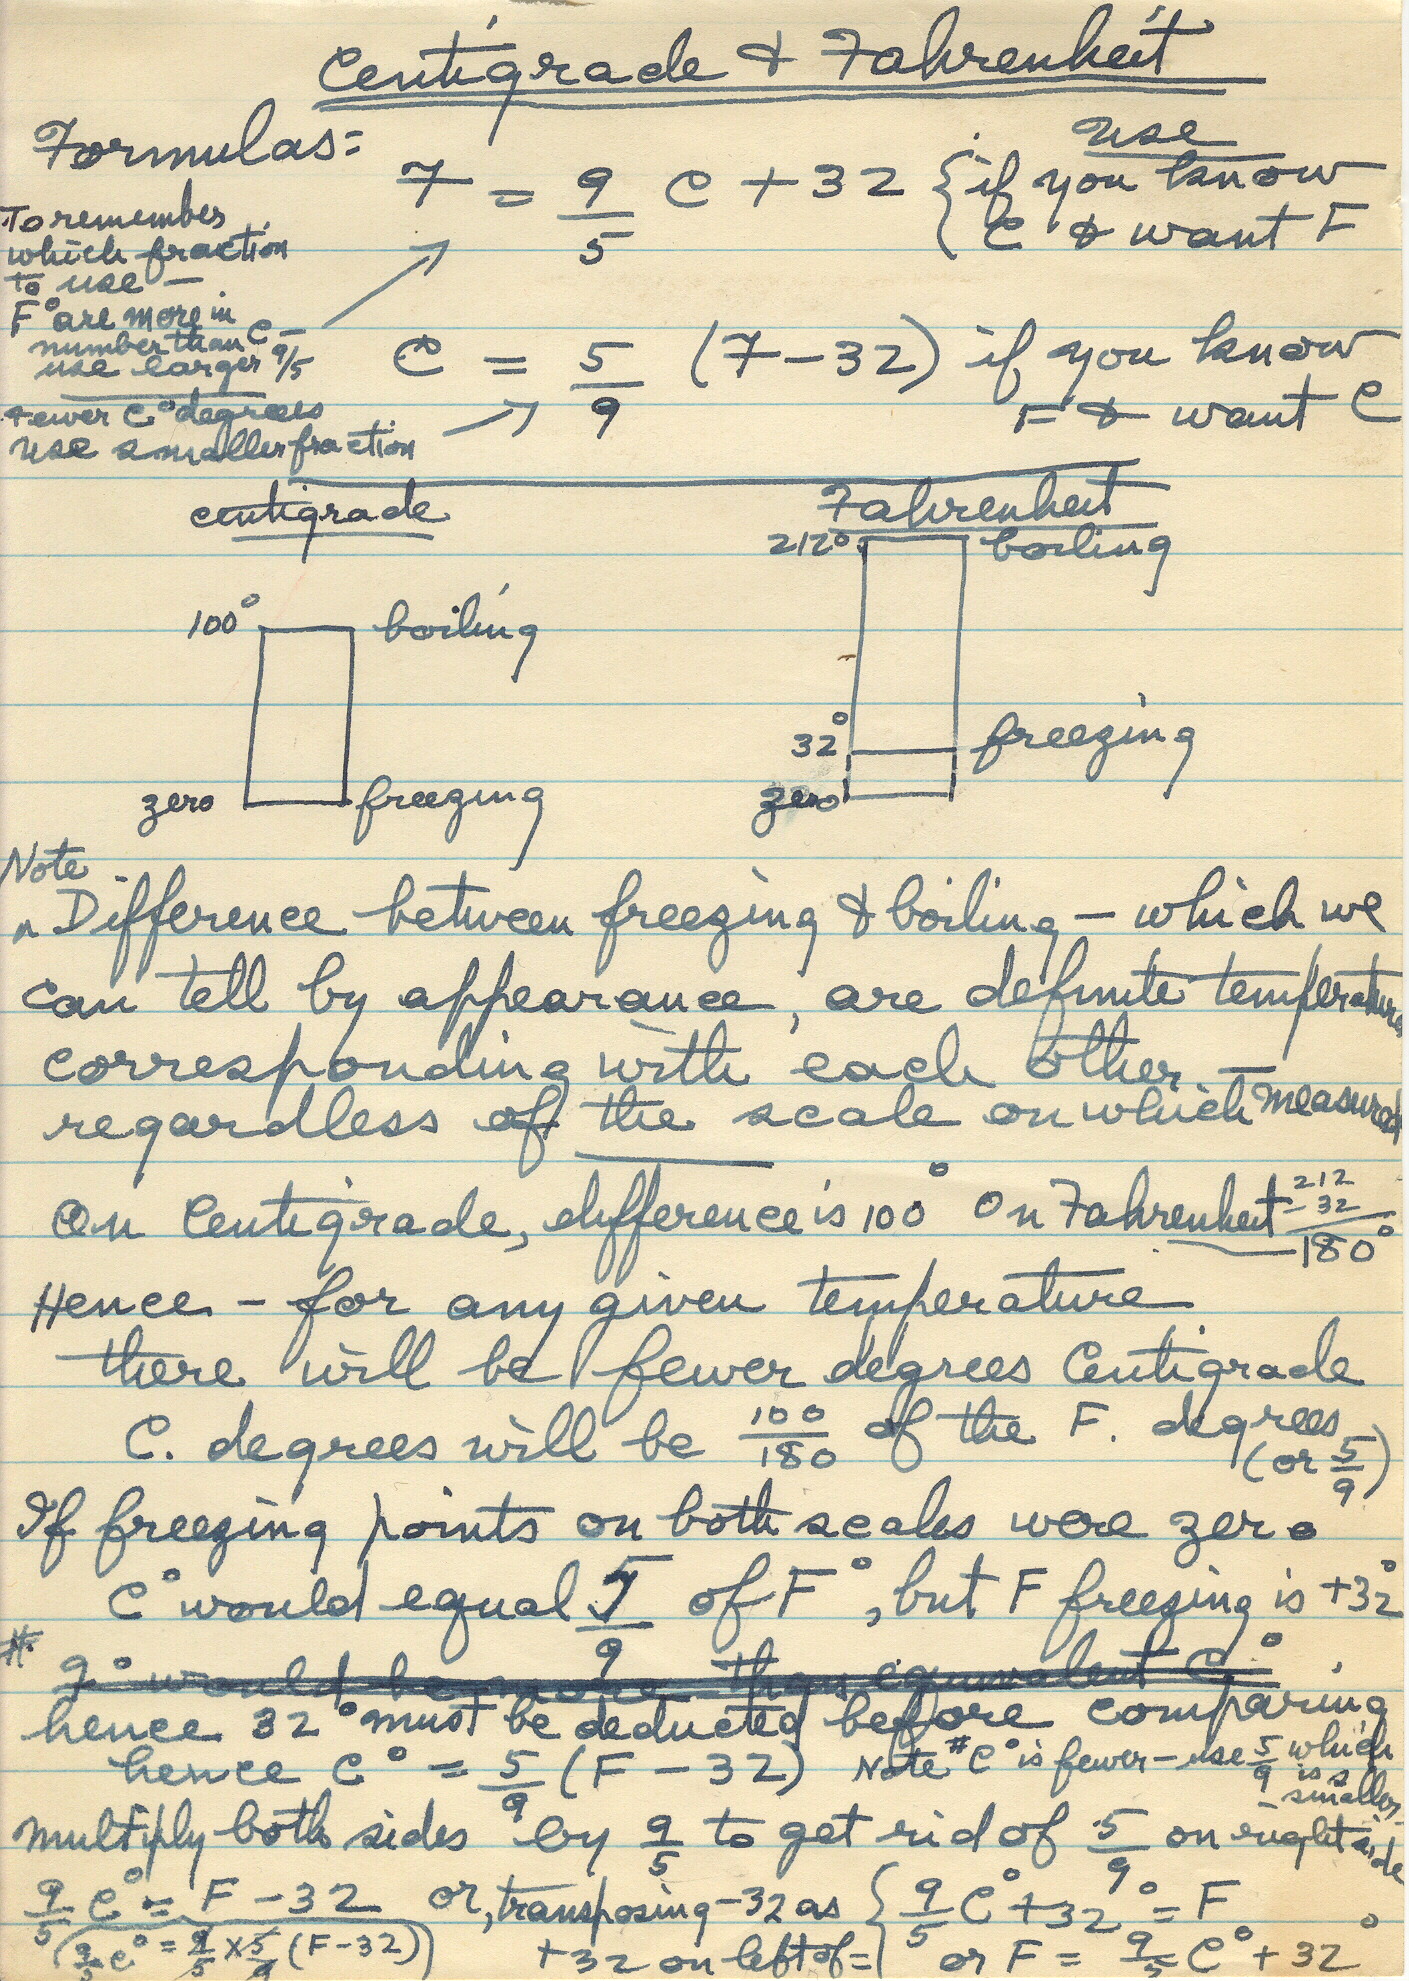 Centigrade & Fahrenheit
Formulas=
Use
F = 9/5 C + 32 { if you know
C & want F
To remember
which fraction
to use –
F° are more in
number than C –
use larger 9/5
C = 5/9 (F – 32) if you know
F & want C
Fewer C° degrees
use smaller fraction
centigrade
Fahrenheit
212° boiling
100° boiling
32° freezing
zero freezing
zero
Note
Difference between freezing & boiling – which we
can tell by appearance, are definite temperatures
corresponding with each other –
regardless of the scale on which measured
On Centigrade, difference is 100° On Fahrenheit 212
– 32
180°
Hence – for any given temperature
there will be fewer degrees Centigrade
C. degrees will be 100/180 of the F. degrees
(or 5/9)
If freezing points on both scales were zero
C° would equal 5/9 of F°, but F freezing is +32°
#
would be more than equivalent C°
hence 32° must be deducted before comparing
hence C° = 5/9 (F – 32) Note # C° is fewer – use 5/9 which
is a
smaller
multiply both sides by 9/5 to get rid of 5/9 on right side
9/5 C° = F – 32 or, transposing –32 as { 9/5 C° + 32° = F
(9/5 C° = 9/5 × 5/9 (F–32)) +32 on left of = or F = 9/5 C° + 32°